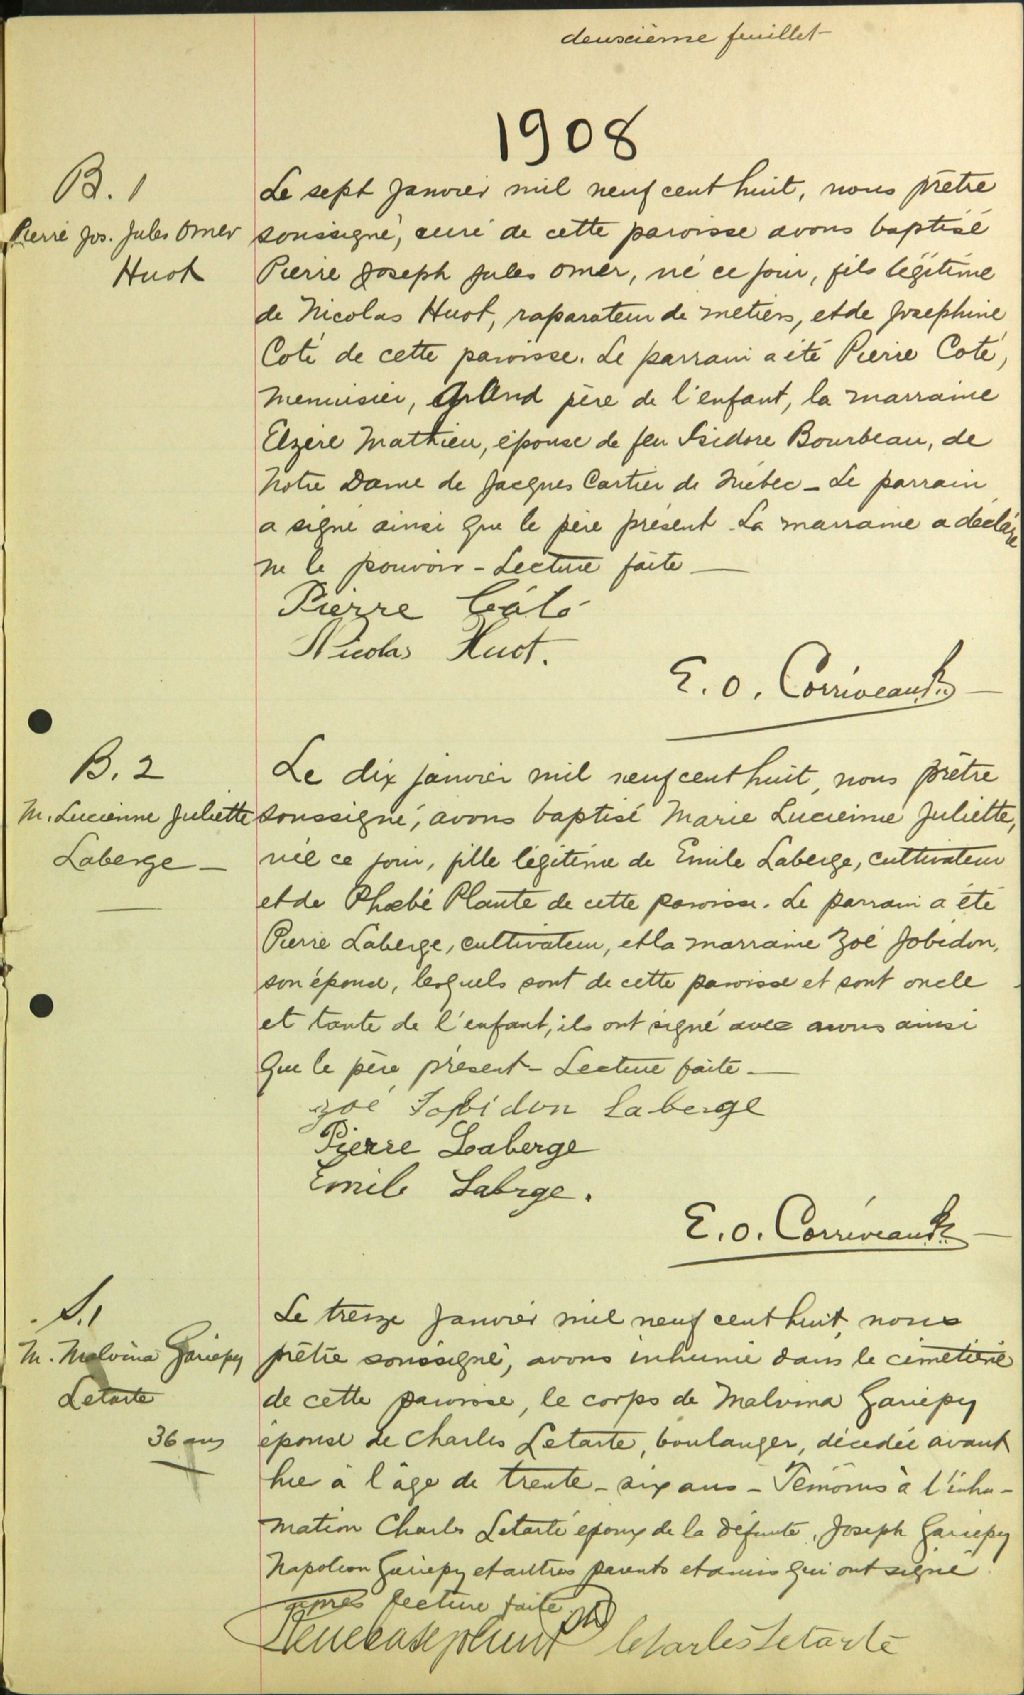 deuxième feuillet
1908
B. 1
Pierre Jos. Jules Omer
Huot
Le sept janvier mil neuf cent huit, nous prêtre
soussigné, curé de cette paroisse avons baptisé
Pierre Joseph Jules Omer, né ce jour, fils légitime
de Nicolas Huot, raparateur de métiers, et de Josephine
Coté de cette paroisse. Le parrain a été Pierre Coté,
menuisier, grand père de l'enfant, la marraine
Elzire Mathieu, épouse de feu Isidore Bourbeau, de
Notre Dame de Jacques Cartier de Québec - Le parrain
a signé ainsi que le père présent. La marraine a déclaré
ne le pouvoir - Lecture faite —
Pierre Côté
Nicolas Huot.
E. O. Corriveau Ptre
B. 2
M. Lucienne Juliette
Laberge —
Le dix janvier mil neuf cent huit, nous prêtre
soussigné, avons baptisé Marie Lucienne Juliette,
née ce jour, fille légitime de Emile Laberge, cultivateur
et de Phœbé Plante de cette paroisse. Le parrain a été
Pierre Laberge, cultivateur, et la marraine Zoé Jobidon,
son épouse, lesquels sont de cette paroisse et sont oncle
et tante de l'enfant, ils ont signé avec nous ainsi
que le père présent - Lecture faite —
Zoé Jobidon Laberge
Pierre Laberge
Emile Labrge.
E. O. Corriveau Ptre
S. 1
M. Malvina Gariepy
Letarte
36 ans
Le treize janvier mil neuf cent huit, nous
prêtre soussigné, avons inhumé dans le cimetière
de cette paroisse, le corps de Malvina Gariepy
épouse de Charles Letarte, boulanger, décédée avant
hier à l'âge de trente-six ans - Témoins à l'inhu-
mation Charles Letarte époux de la défunte, Joseph Gariepy
Napoléon Gariepy et autres parents et amis qui ont signé
après lecture faite.
Charles Letarte